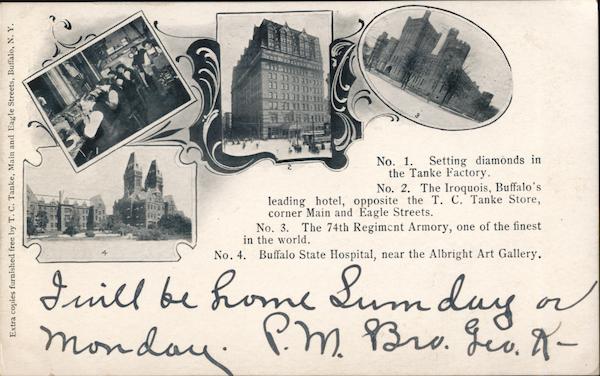 Extra copies furnished free by T. C. Tanke, Main and Eagle Streets, Buffalo, N. Y.
2
3
4
No. 1. Setting diamonds in
the Tanke Factory.
No. 2. The Iroquois, Buffalo's
leading hotel, opposite the T. C. Tanke Store,
corner Main and Eagle Streets.
No. 3. The 74th Regiment Armory, one of the finest
in the world.
No. 4. Buffalo State Hospital, near the Albright Art Gallery.
I will be home Sumday or
Monday. P.M. Bro. Geo. K-